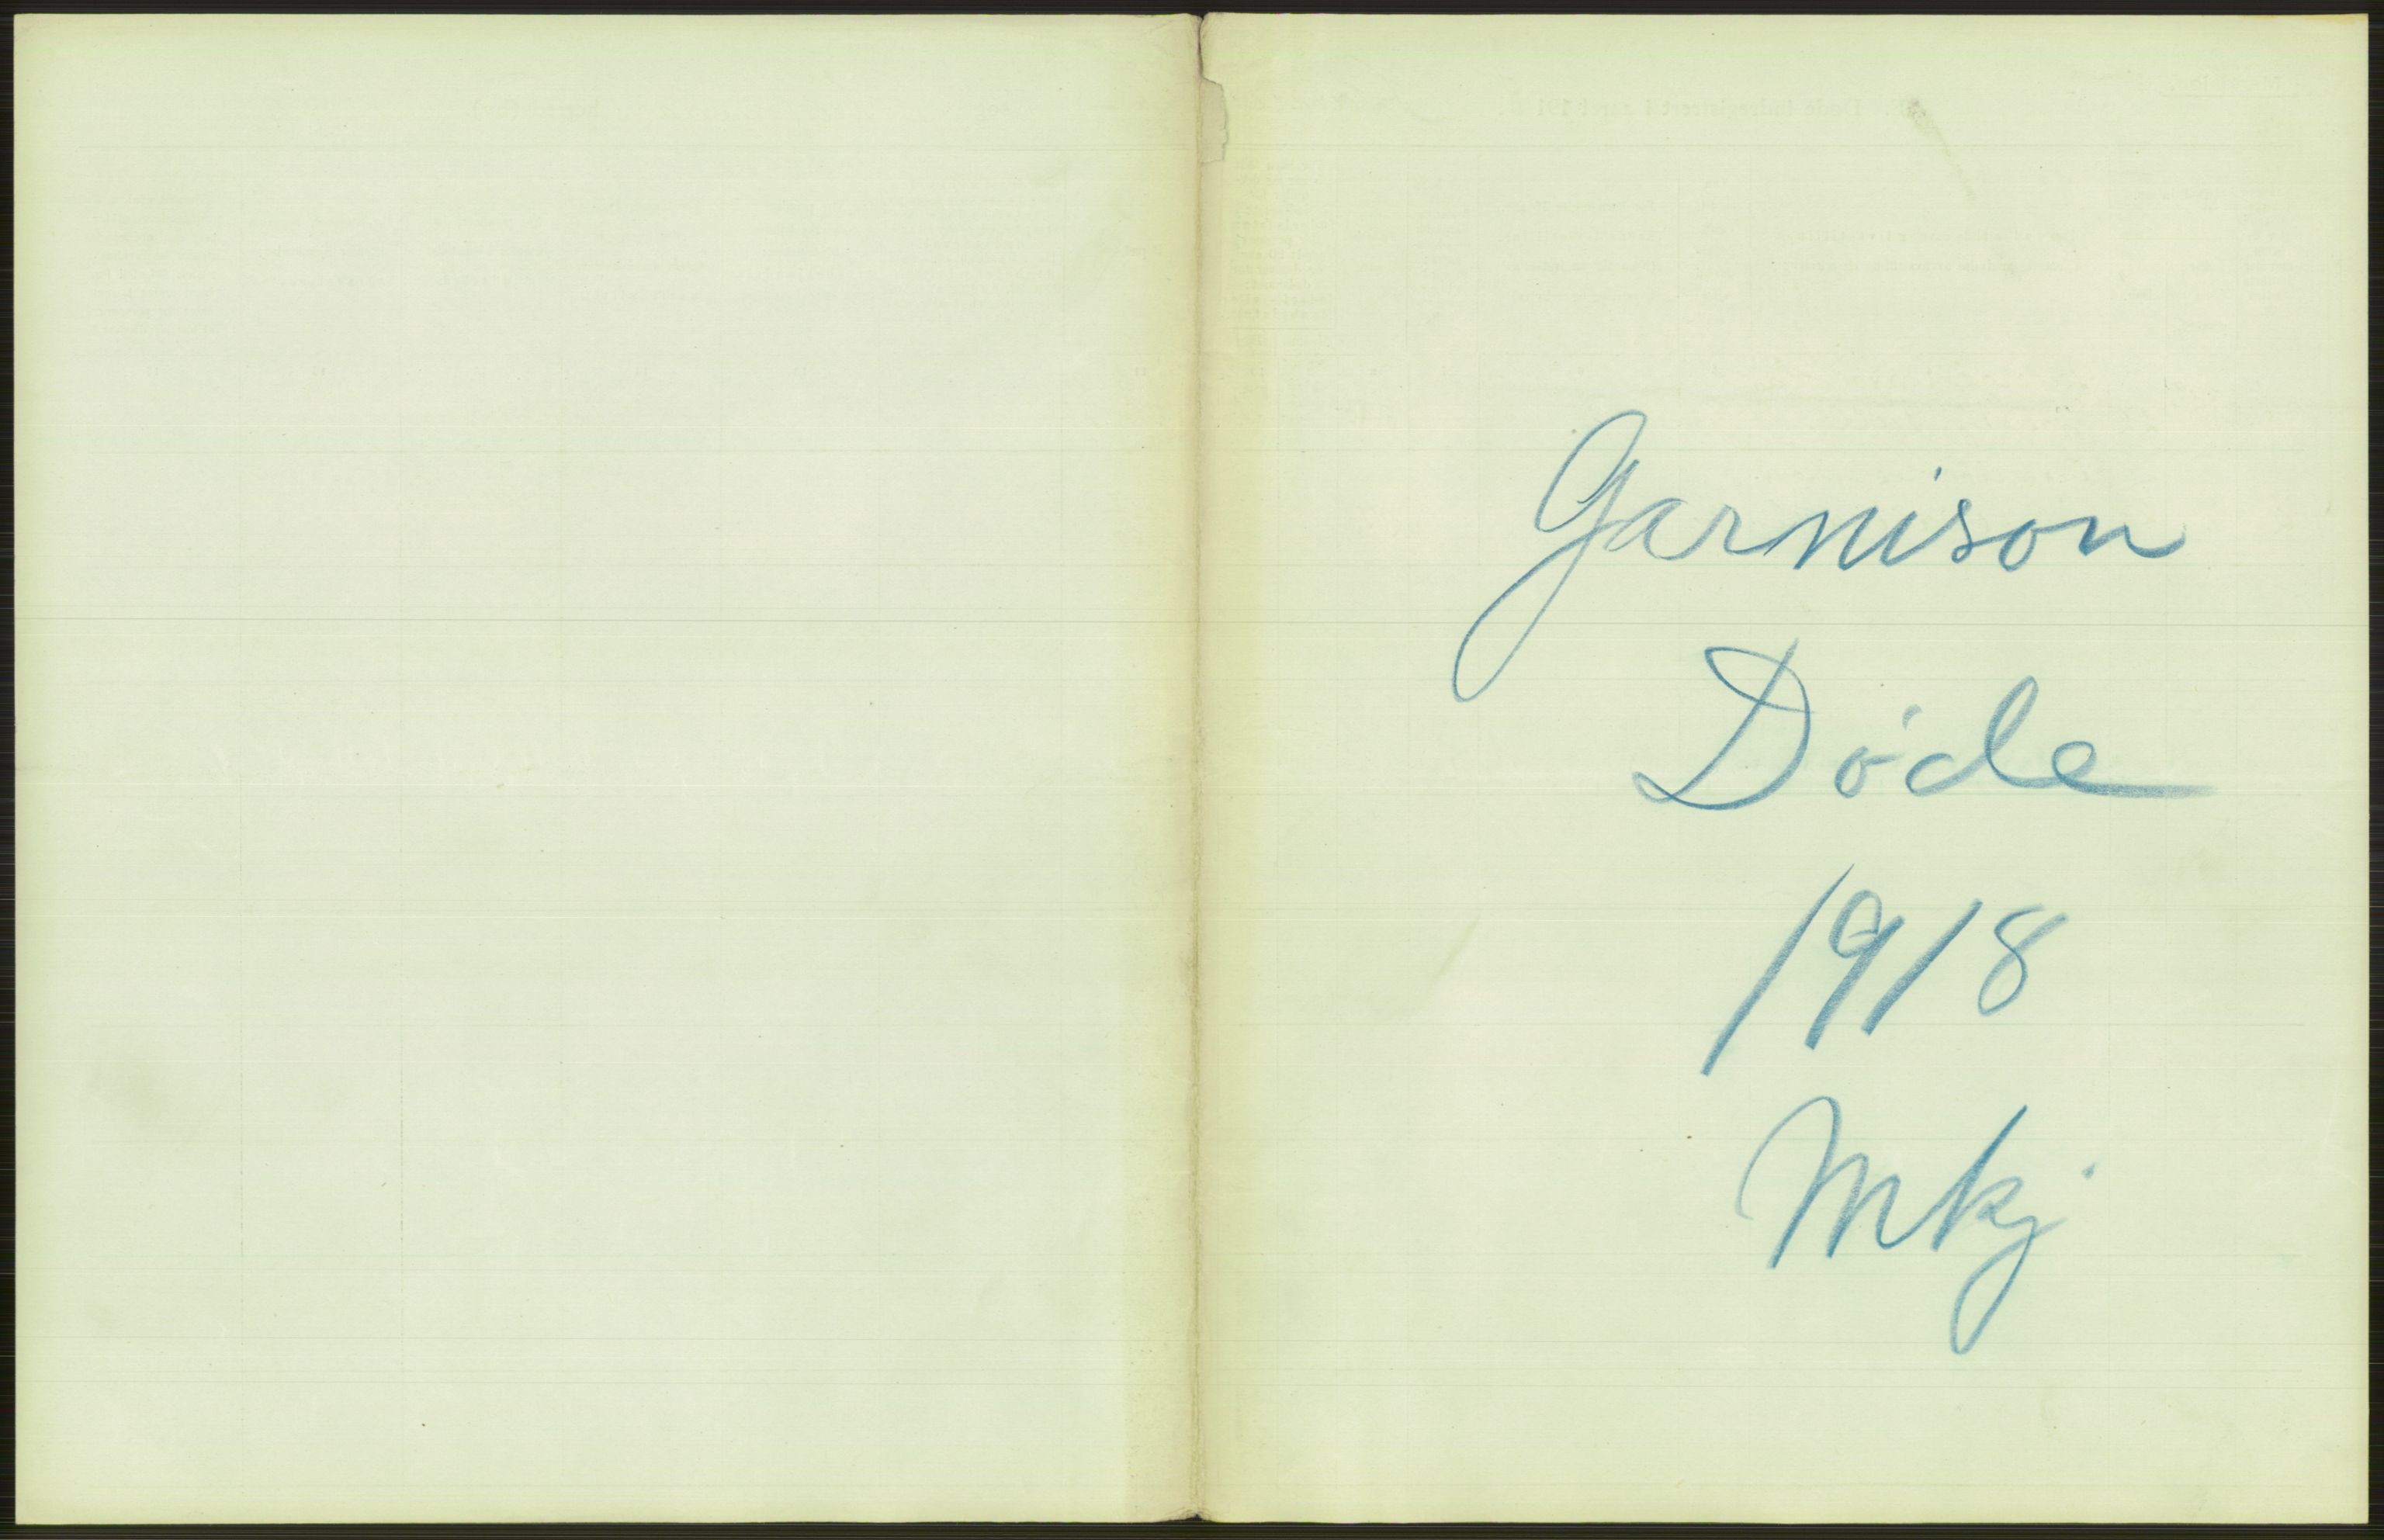 Garnison
Døde
1918
Mkj